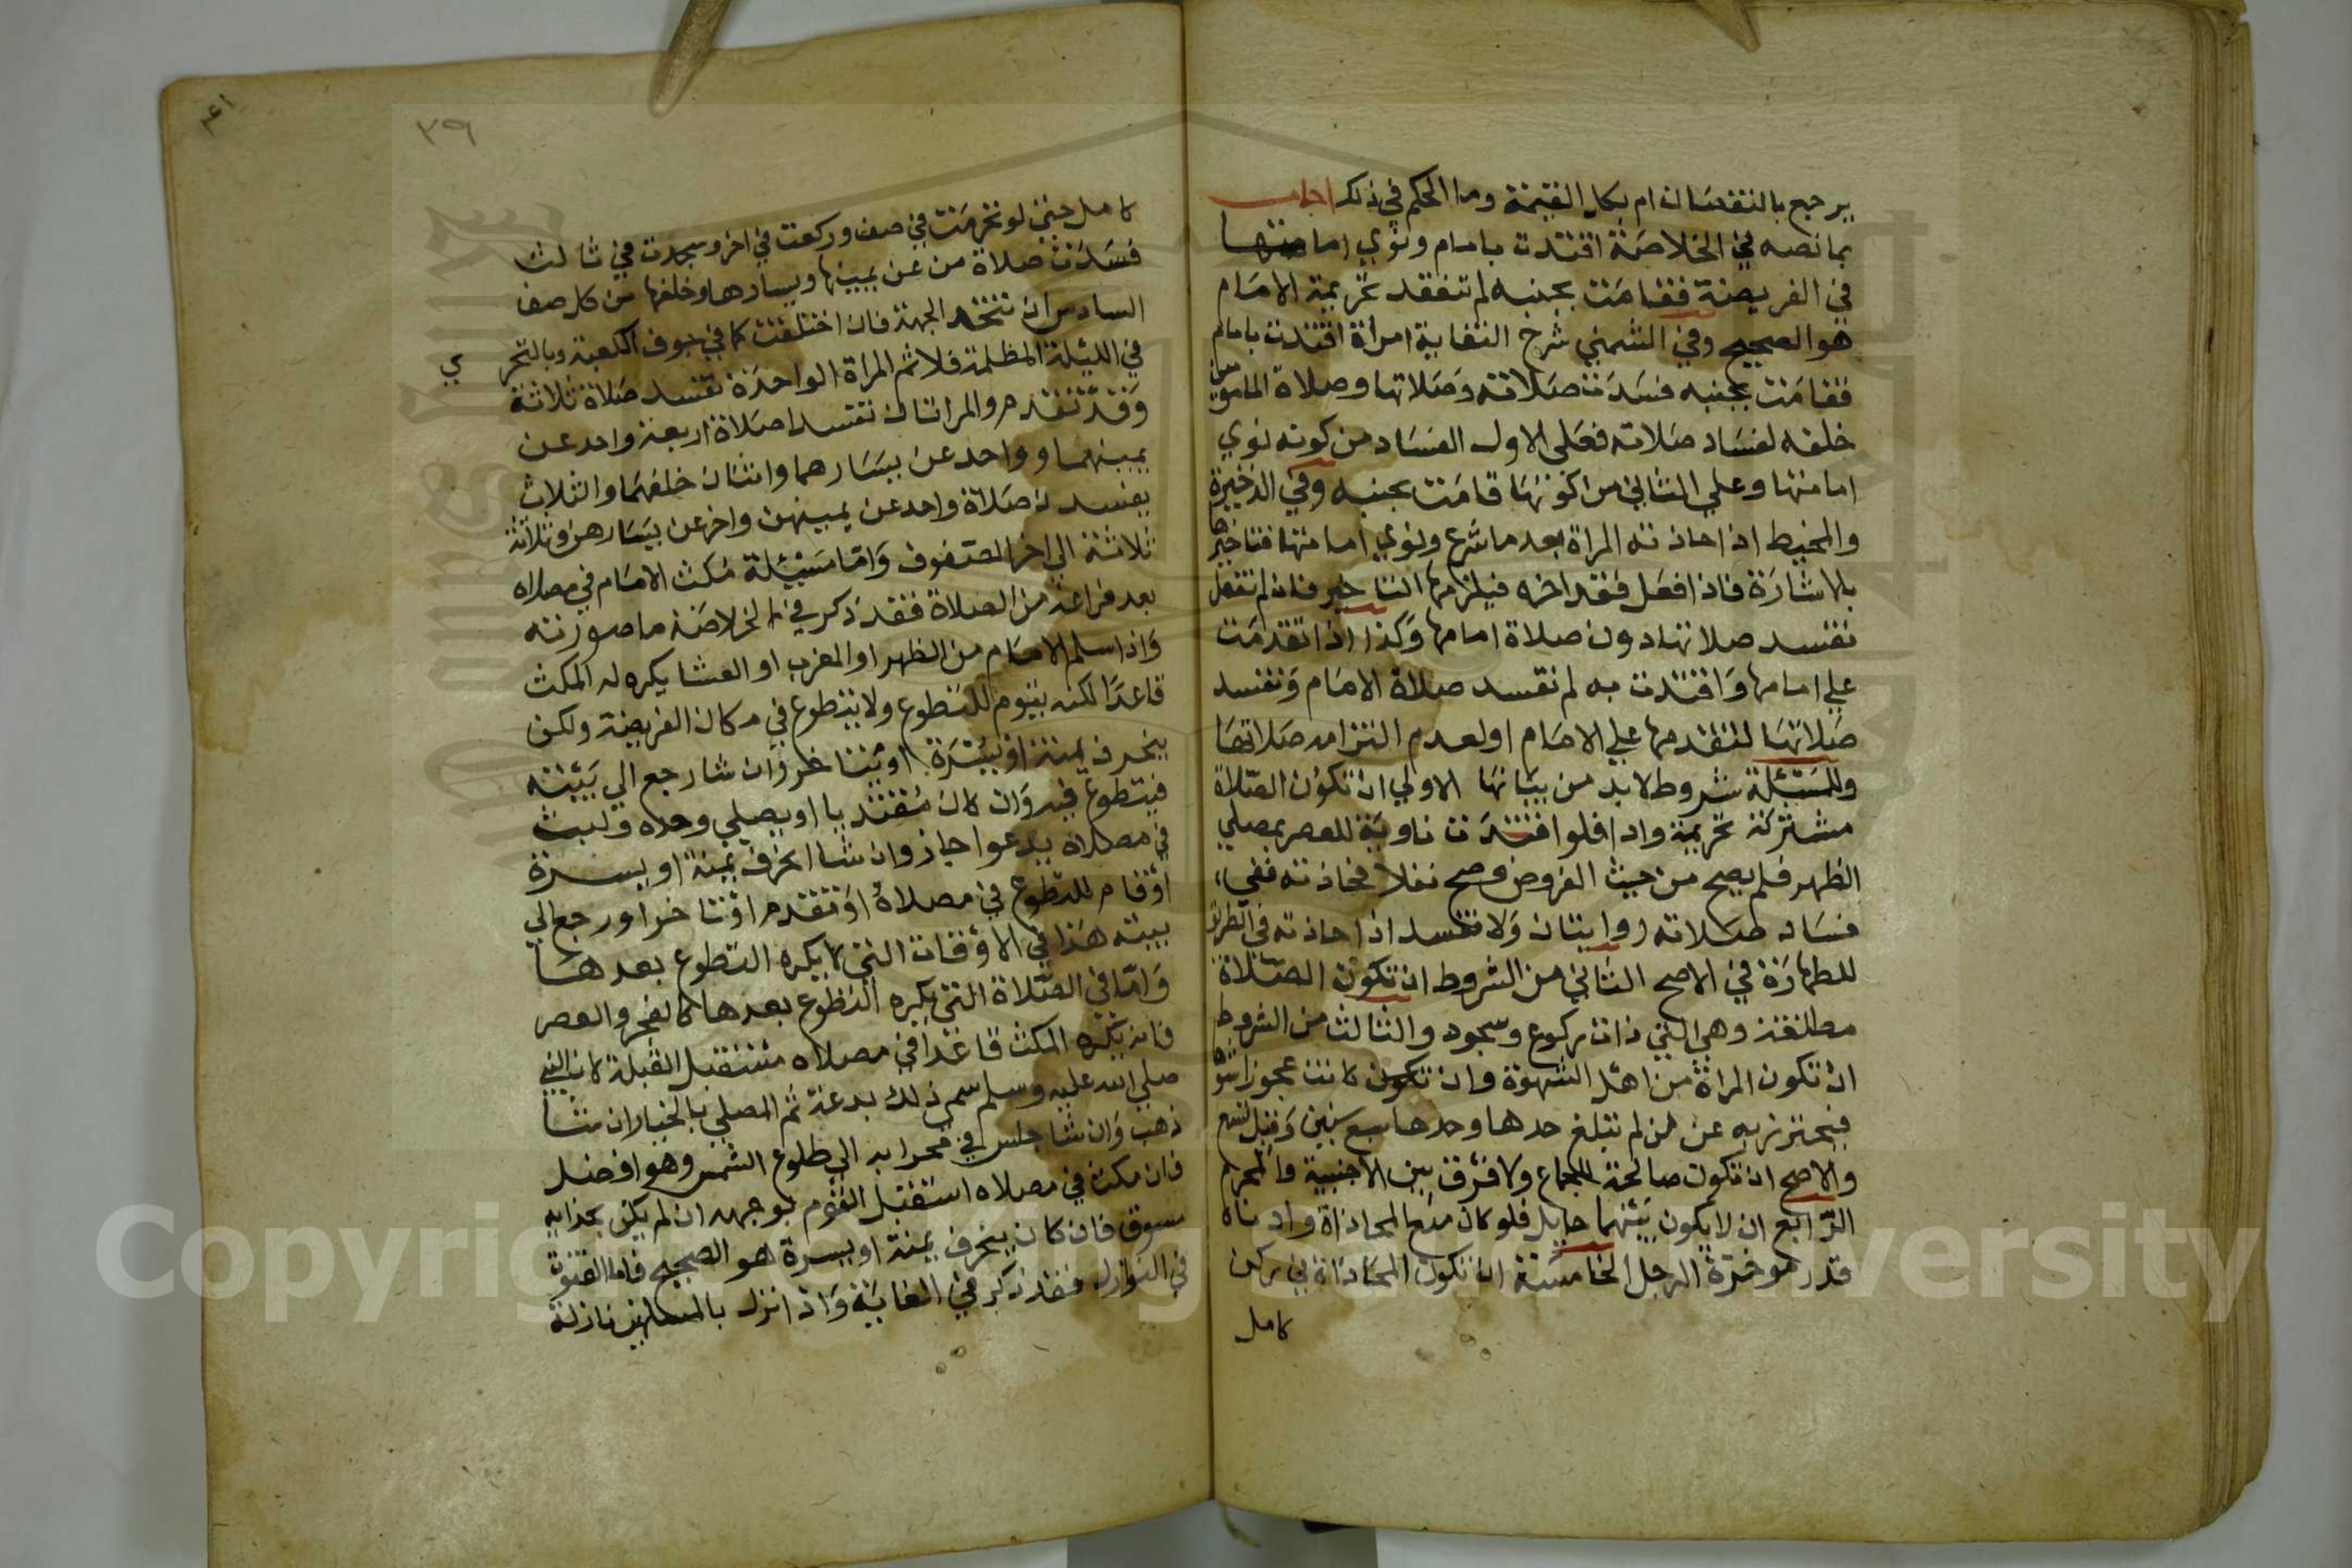 يرجع بالنقصان ام بكل القيمة وما الحكم في ذلك اجاب
بما نصه في الخلاصة اقتدت بامام ونوي امامتها
في الفريضة فقامت بجنبه لم تنعقد تحريمة الامام
هو الصحيح وفي الشمني شرح النقاية امرأة اقتدت بامام
فقامت بجنبه فسدت صلاته وصلاتها وصلاة المامومين
خلفه لفساد صلاته فعلي الاول الفساد من كونه نوي
امامتها وعلي الثاني من كونها قامت بجنبه وفي الذخيرة
والمحيط اذا حاذته المراة بعد ما شرع ونوي امامتها فتاخيرها
بالاشارة فاذا فعل فقد اخره فيلزمها التاخير فان لم تفعل
تفسد صلاتها دون صلاة امامها وكذا اذا تقدمت
علي امامها واقتدت به لم تفسد صلاة الامام وتفسد
صلاتها لتقدمها علي الامام او لعدم التزامه صلاتها
وللمسئلة شروط لابد من بيانها الاولي ان تكون الصلاة
مشتركة تحريمة وادا فلو اقتدت ناوية للعصر بمصلي
الظهر فلم يصح من حيث الفروض وصح نفلا فحاذته ففي
فساد صلاته روايتان ولا تفسد اذا حاذته في الطريق
للطهارة في الاصح الثاني من الشروط ان تكون الصلاة
مطلقة وهي التي ذات ركوع وسجود والثالث من الشروط
ان تكون المراة من اهل الشهوة وان كانت عجوزا شوها
فيحترز به عن من لم تبلغ حدها وحدها سبع سنين وقيل تسع
والاصح ان تكون صالحة للجماع ولا فرق بين الاجنبية والمحرم
الرابع ان لا يكون بينهما حايل فلو كان منع المحاذاة وادناه
قدر موخرة الرجل الخامسة ان تكون المحاذاة في ركن
كامل
٣٩
٤١
كامل حتي لو تحرمت في صف وركعت في اخر وسجدت في ثالث
فسدت صلاة من عن يمينها ويسارها وخلفها من كل صف
السادس ان تتحد الجهة فان اختلفت كما في جوف الكعبة وبالتحري
في الليلة المظلمة فلا ثم المراة الواحدة تفسد صلاة ثلاثة
وقد تقدم والمراتان تفسد صلاة اربعة واحد عن
يمينهما وواحد عن يسارهما واثنان خلفهما والثلاث
يفسدن صلاة واحد عن يمينهن واخر عن يسارهن وثلاثة
ثلاثة الي اخر الصفوف واما مسئلة مكث الامام في مصلاه
بعد فراغه من الصلاة فقد ذكر في الخلاصة ما صورته
واذا سلم الامام من الظهر او المغرب او العشا يكره له المكث
قاعدا لكنه يقوم للتطوع ولا يتطوع في مكان الفريضة ولكن
ينحرف يمنة او يسرة او يتاخر وان شا رجع الي بيته
فيتطوع فيه وان كان مقتديا او يصلي وحده ولبث
في مصلاه يدعوا جاز وان شا انحرف يمنة او يسرة
او قام للتطوع في مصلاه او تقدم او تاخر او رجع الي
بيته هذا في الاوقات التي لا يكره التطوع بعدها
واما في الصلاة التي يكره التطوع بعدها كالفجر والعصر
فانه يكره المكث قاعدا في مصلاه مستقبل القبلة لان النبي
صلي الله عليه وسلم سمي ذلك بدعة ثم المصلي بالخيار ان شا
ذهب وان شا جلس في محرابه الي طلوع الشمس وهو افضل
فان مكث في مصلاه استقبل القوم بوجهه ان لم يكن بحذايه
مسبوق فان كان ينحرف يمنة او يسرة هو الصحيح فاما القنوت
في النوازل فقد ذكر في الغاية واذا نزل بالمسلمين نازلة
Copyright © King Saud University